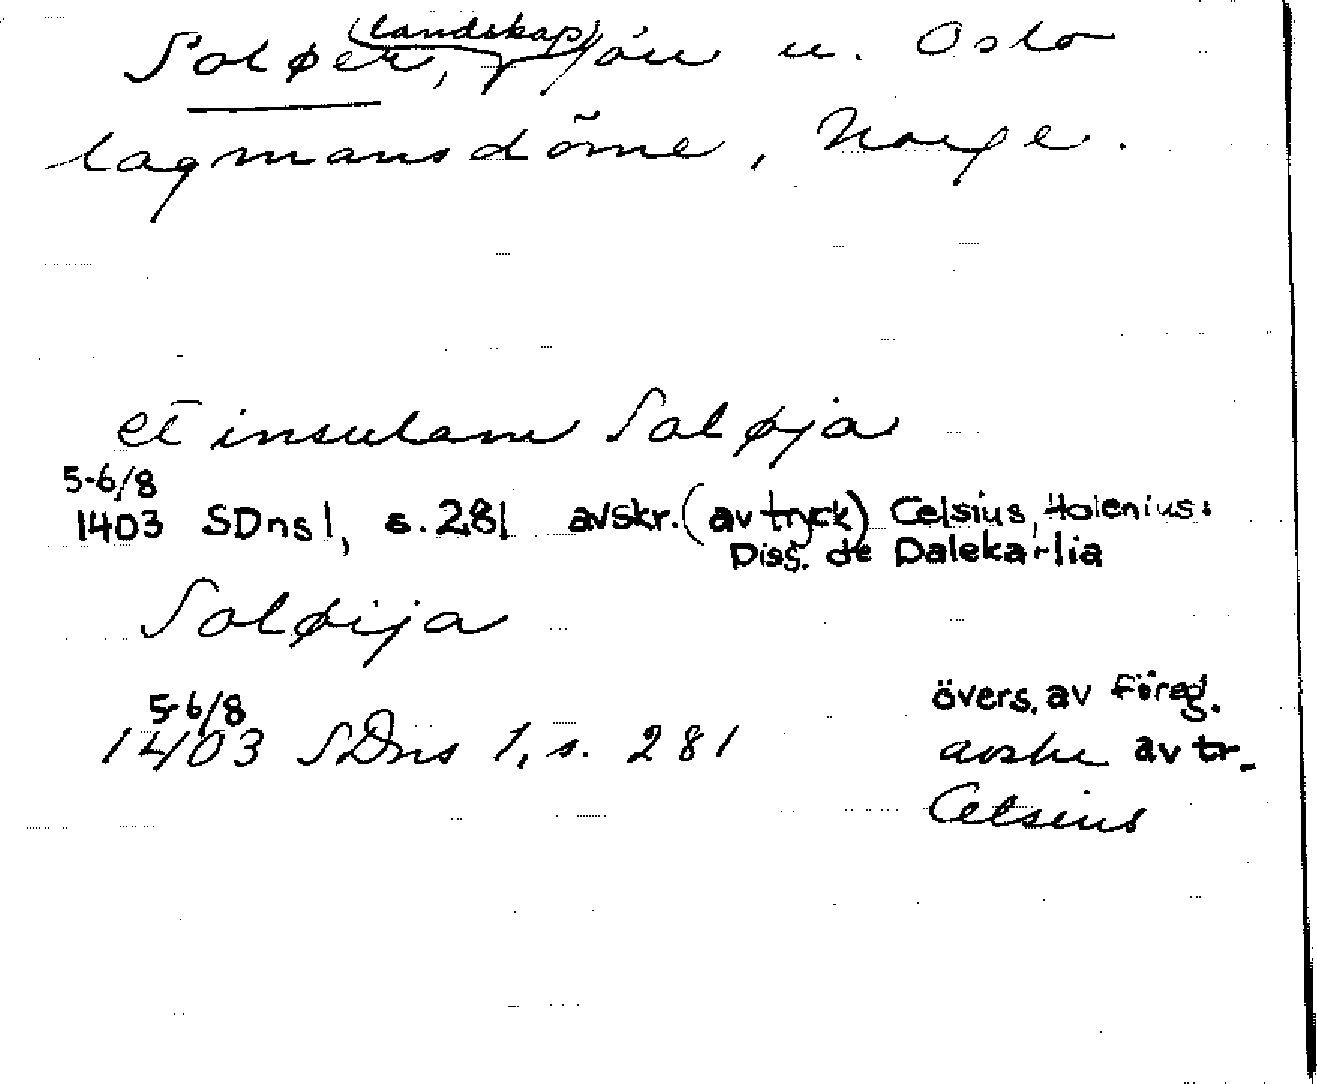 Soløer, (landskap) i får u. Oslo
lagmansdöme, Norge.
et insulam Soløja
5-6/8
1403 SDns1, s. 281 avskr. (av tryck) Celsius, Holenius:
Diss. de Dalekarlia
Soløija
5-6/8
1403 SDns 1, s. 281
övers. av föreg.
avskr av tr.
Celsius